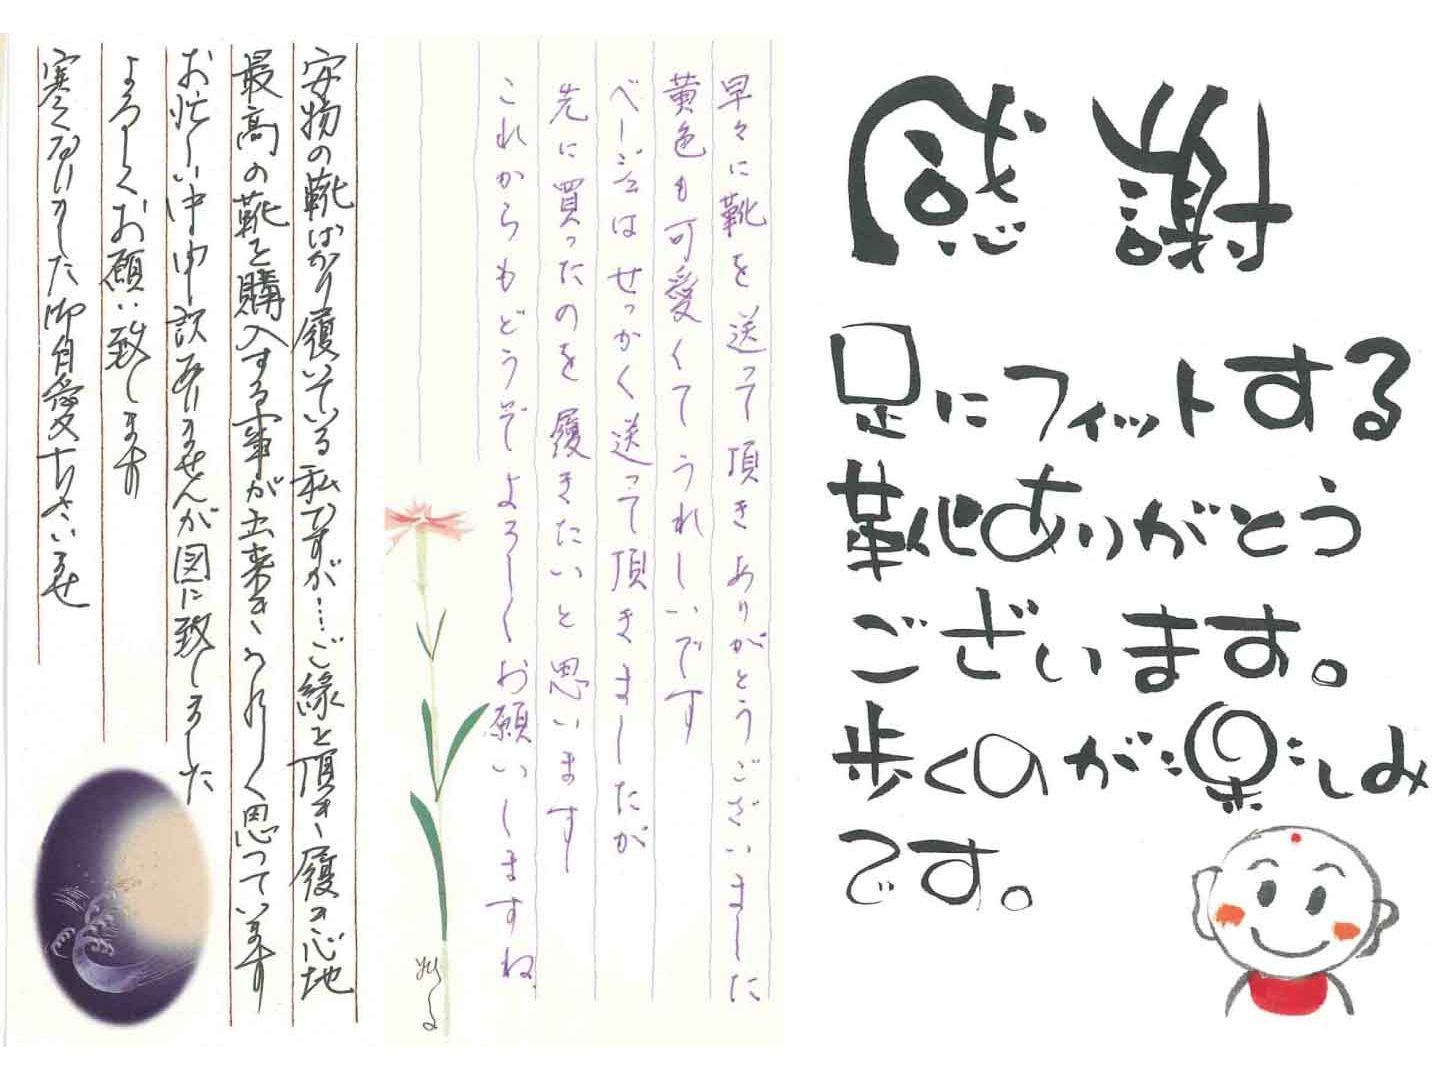 感謝
足にフィットする
靴ありがとう
ございます。
歩くのが楽しみ
です。
早々に靴を送って頂きありがとうございました
黄色も可愛くてうれしいです
ベージュはせっかく送って頂きましたが
先に買ったのを履きたいと思います
これからもどうぞよろしくお願いしますね
安物の靴ばかり履いている私ですが…ご縁を頂き、履き心地
最高の靴を購入する事が出来き、うれしく思っています
お忙しい中申し訳ありませんが図に致しました
よろしくお願い致します
寒くなりました御自愛下さいませ